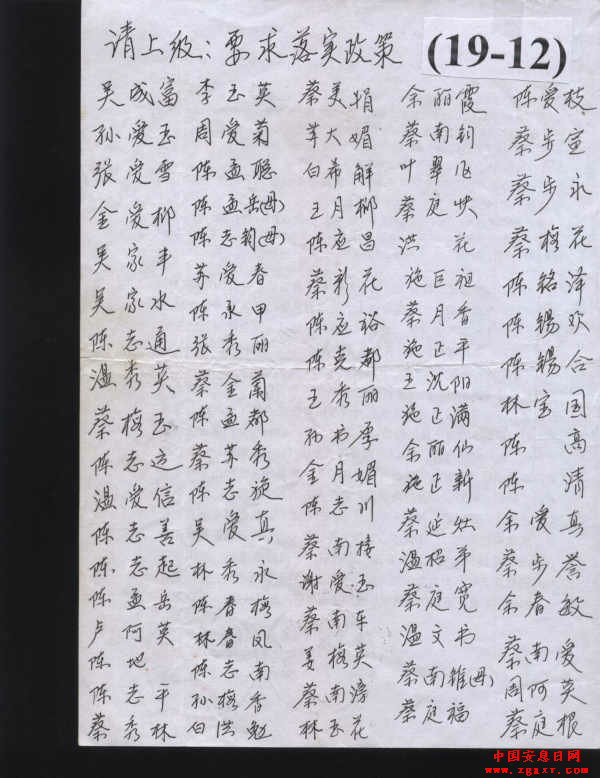 请上级：要求落实政策
(19-12)
吴成富 李玉英 蔡美娟 余丽霞 陈爱枝
孙爱玉 周爱菊 大媚 蔡南钧 蔡步宣
张爱雪 陈孟聪 白希解 叶翠 蔡步永
金爱柳 陈孟岳(母) 王月柳 蔡庭 蔡梅花
吴家丰 陈志钧(母) 陈应昌 洪花 陈铭泽
吴家水 苏爱春 蔡彩花 施巨祖 陈锡欢
陈志通 陈永甲 陈应裕 蔡月香 陈锡合
温秀英 张秀丽 陈克都 施正平 林宝国
蔡梅玉 蔡金兰 王秀丽 王沈阳 陈高
陈志远 陈孟都 孙书厚 施正满 陈清
温爱信 蔡苏秀 金月媚 余丽仙 余爱真
陈志善 陈志旋 陈志川 施正新 蔡步誉
陈志起 吴爱真 蔡南接 蔡延灶 余春敏
陈孟岳 林秀永 谢爱玉 温招弟 蔡南爱
卢阿英 陈春梅 蔡南车 蔡庭宽 周阿英
陈地 林春凤 姜梅英 温文书 蔡庭根
陈志平 陈志南 蔡南淳 蔡南锥(母)
蔡秀林 孙梅香 林玉花 蔡庭福
白洪勉
中国安息日网
www.zgaxr.com